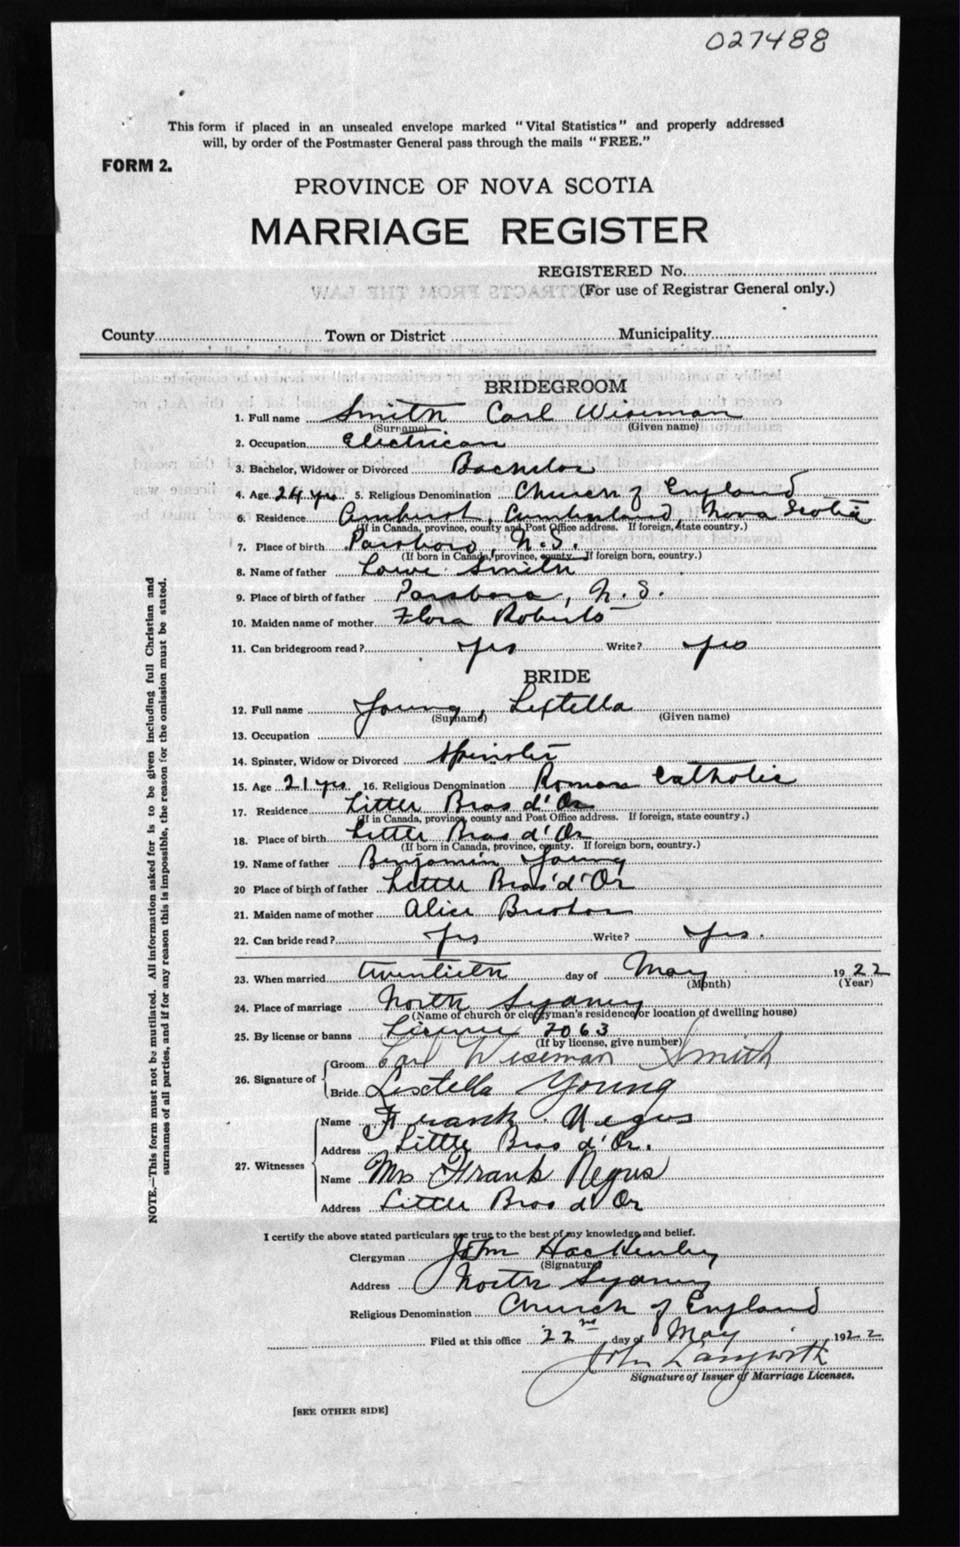 027488
This form if placed in an unsealed envelope marked "Vital Statistics" and properly addressed
will, by order of the Postmaster General pass through the mails "FREE."
FORM 2.
PROVINCE OF NOVA SCOTIA
MARRIAGE REGISTER
REGISTERED No.
(For use of Registrar General only.)
County Town or District Municipality
BRIDEGROOM
1. Full name Smith Carl Wiseman
(Surname) (Given name)
2. Occupation Electrican
3. Bachelor, Widower or Divorced Bachelor
4. Age 24 yrs 5. Religious Denomination Church of England
6. Residence Amherst, Cumberland, Nova Scotia
(If in Canada, province, county and Post Office address. If foreign, state country.)
7. Place of birth Parsboro, N.S.
(If born in Canada, province, county. If foreign born, country.)
8. Name of father Lowe Smith
9. Place of birth of father Parsboro, N.S.
10. Maiden name of mother Flora Roberts
11. Can bridegroom read? yes Write? yes
BRIDE
12. Full name Young, Lextella
(Surname) (Given name)
13. Occupation
14. Spinster, Widow or Divorced Spinster
15. Age 21 yrs 16. Religious Denomination Roman Catholic
17. Residence Little Bras d'Or
(If in Canada, province, county and Post Office address. If foreign, state country.)
18. Place of birth Little Bras d'Or
(If born in Canada, province, county. If foreign born, country.)
19. Name of father Benjamin Young
20 Place of birth of father Little Bras d'Or
21. Maiden name of mother Alice
22. Can bride read? Yes Write? Yes.
23. When married twentieth day of May 1922
(Month) (Year)
24. Place of marriage North Sydney
(Name of church or clergyman's residence or location of dwelling house)
25. By license or banns License 7063
(If by license, give number)
26. Signature of
Groom Carl Wiseman Smith
Bride Lextella Young
27. Witnesses
Name Frank Negus
Address Little Bras d'Or.
Name Mrs Frank Negus
Address Little Bras d'Or
I certify the above stated particulars are true to the best of my knowledge and belief.
Clergyman John Hackenley
(Signature)
Address North Sydney
Religious Denomination Church of England
Filed at this office 22nd day of May 1922
John Langworth
Signature of Issuer of Marriage Licenses.
[SEE OTHER SIDE]
NOTE.—This form must not be mutilated. All information asked for is to be given including full Christian and
surnames of all parties, and if for any reason this is impossible, the reason for the omission must be stated.